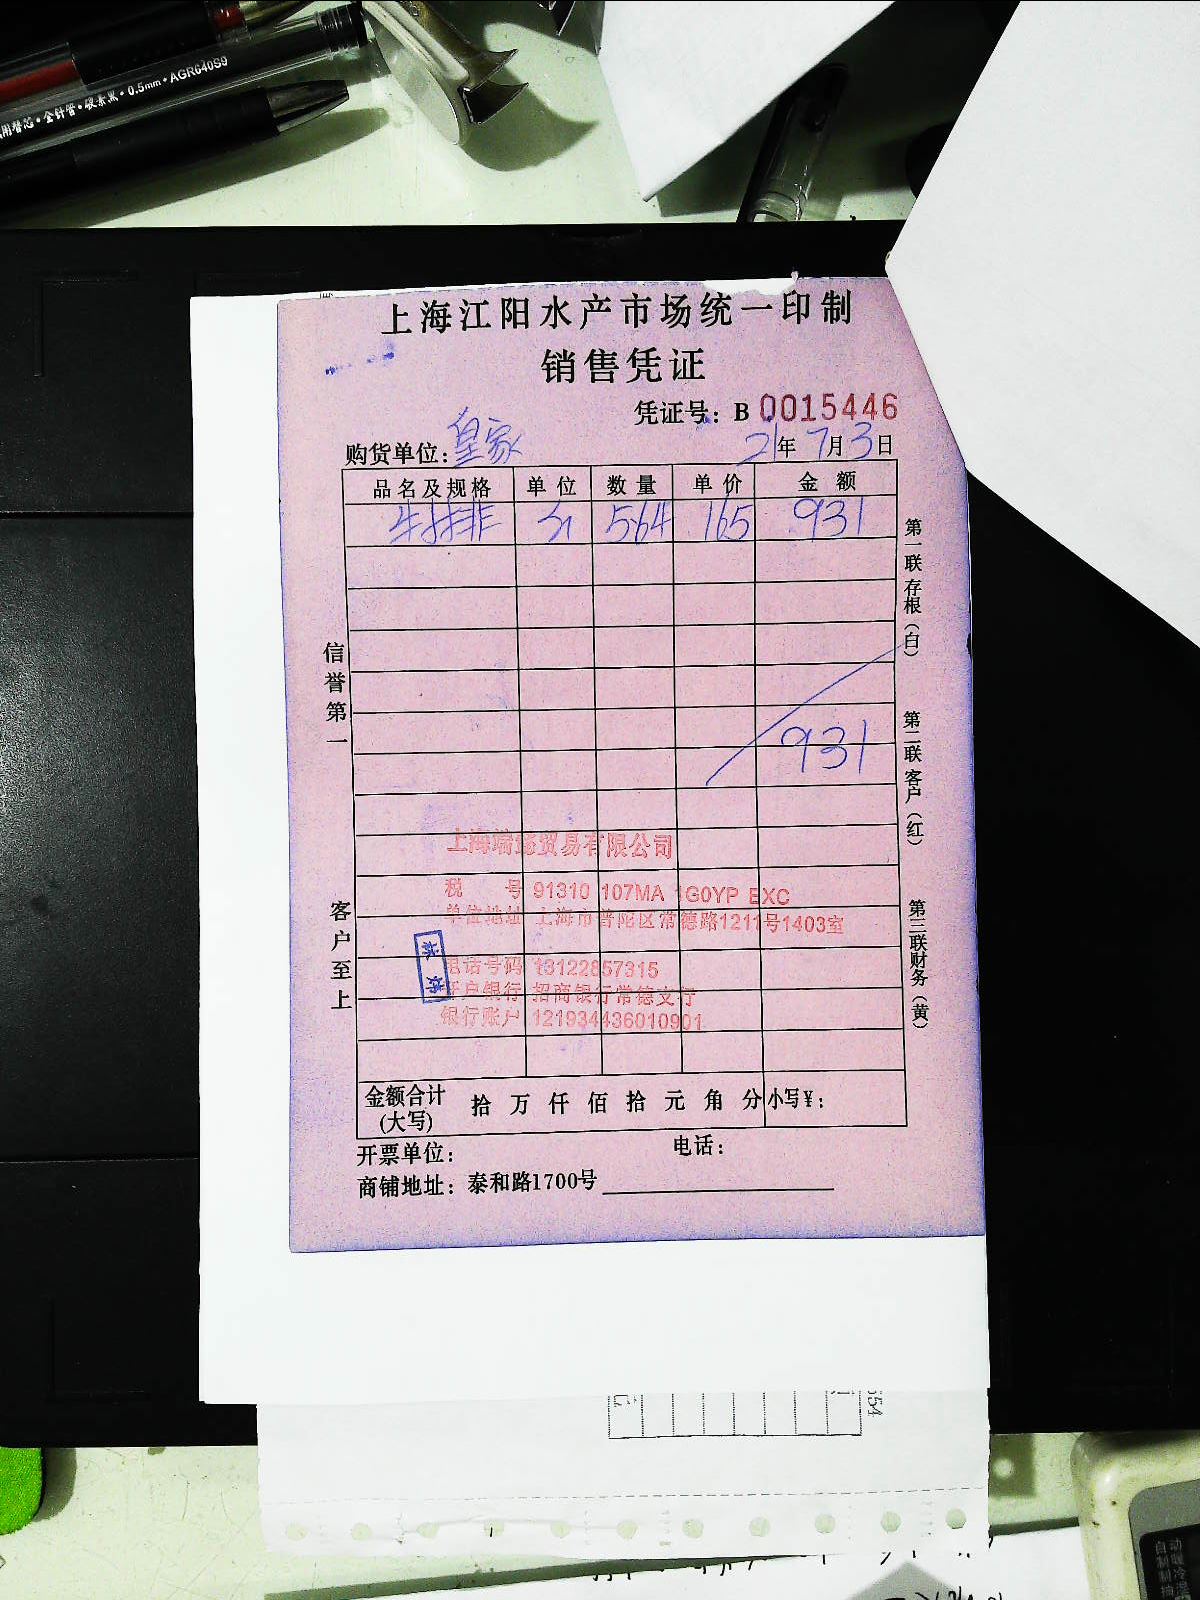 用替芯·金针管·碳素黑·0.5mm·AGR640S9
上海江阳水产市场统一印制
销售凭证
凭证号：B 0015446
购货单位：皇家 21年 7月 3日
品名及规格 单位 数量 单价 金额
牛排 564 165 931
931
信誉第一
客户至上
第一联存根（白）
第二联客户（红）
第三联财务（黄）
贸易有限公司
税 号 91310 107MA 1G0YP EXC
单位地址 上海市普陀区常德路1211号1403室
电话号码 13122857315
开户银行 招商银行常德支行
银行账户 121934436010901
金额合计(大写) 拾 万 仟 佰 拾 元 角 分 小写¥：
开票单位： 电话：
商铺地址：泰和路1700号
554